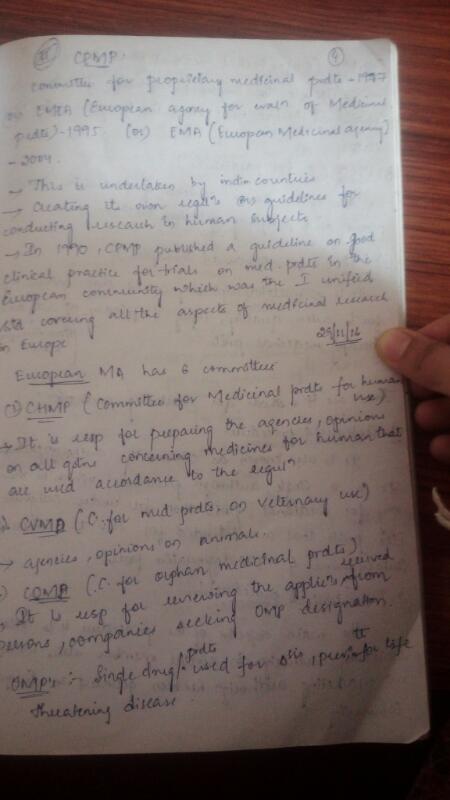 II CPMP. 4
committee for propriciary medicinal prdts - 1977
or EMEA (European agency for evaln of Medicinal
prdts) - 1995 (or) EMA (European Medicinal agency)
- 2004.
→ This is undertaken by indn countries
→ Creating its own regulns or guidelines for
conducting research in human subjects
→ In 1990, CPMP published a guideline on good
clinical practice for trials on med. prdts in the
European community which was the I unified
std covering all the aspects of medicinal research
in Europe
29/11/16
European MA has 6 committees
(1) CHMP (Committee for Medicinal prdts for human use)
→ It is resp for preparing the agencies, opinions
on all qstns concerning medicines for human that
are used accordance to the reguln
CVMP (C. for med prdts, on veternary use)
→ agencies, opinions on animals.
COMP (C. for orphan medicinal prdts)
It is resp for reviewing the applicns received from
persons, companies seeking OMP designation.
OMP's :- Single drug/prdts used for , for life
threatening disease